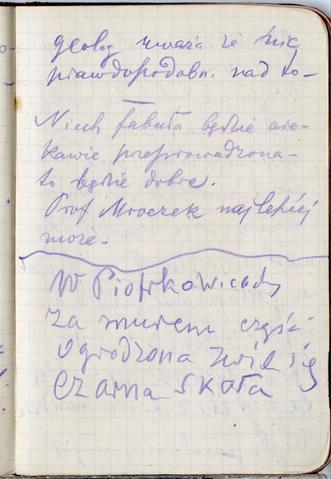 geolog uważa że
prawdopodobn. nad to-
Niech fabuła będzie cie-
kawie przeprowadzona-
to będzie dobre.
Prof Mroczek najlepiej
może.
W Piotrkowicach
za murem część
ogrodzona zwie się
czarna skała